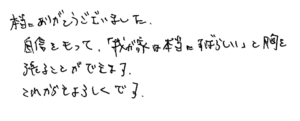 本当にありがとうございました.
自信をもって、「我が家は本当にすばらしい」と胸を
張ることができます.
これからもよろしくです.